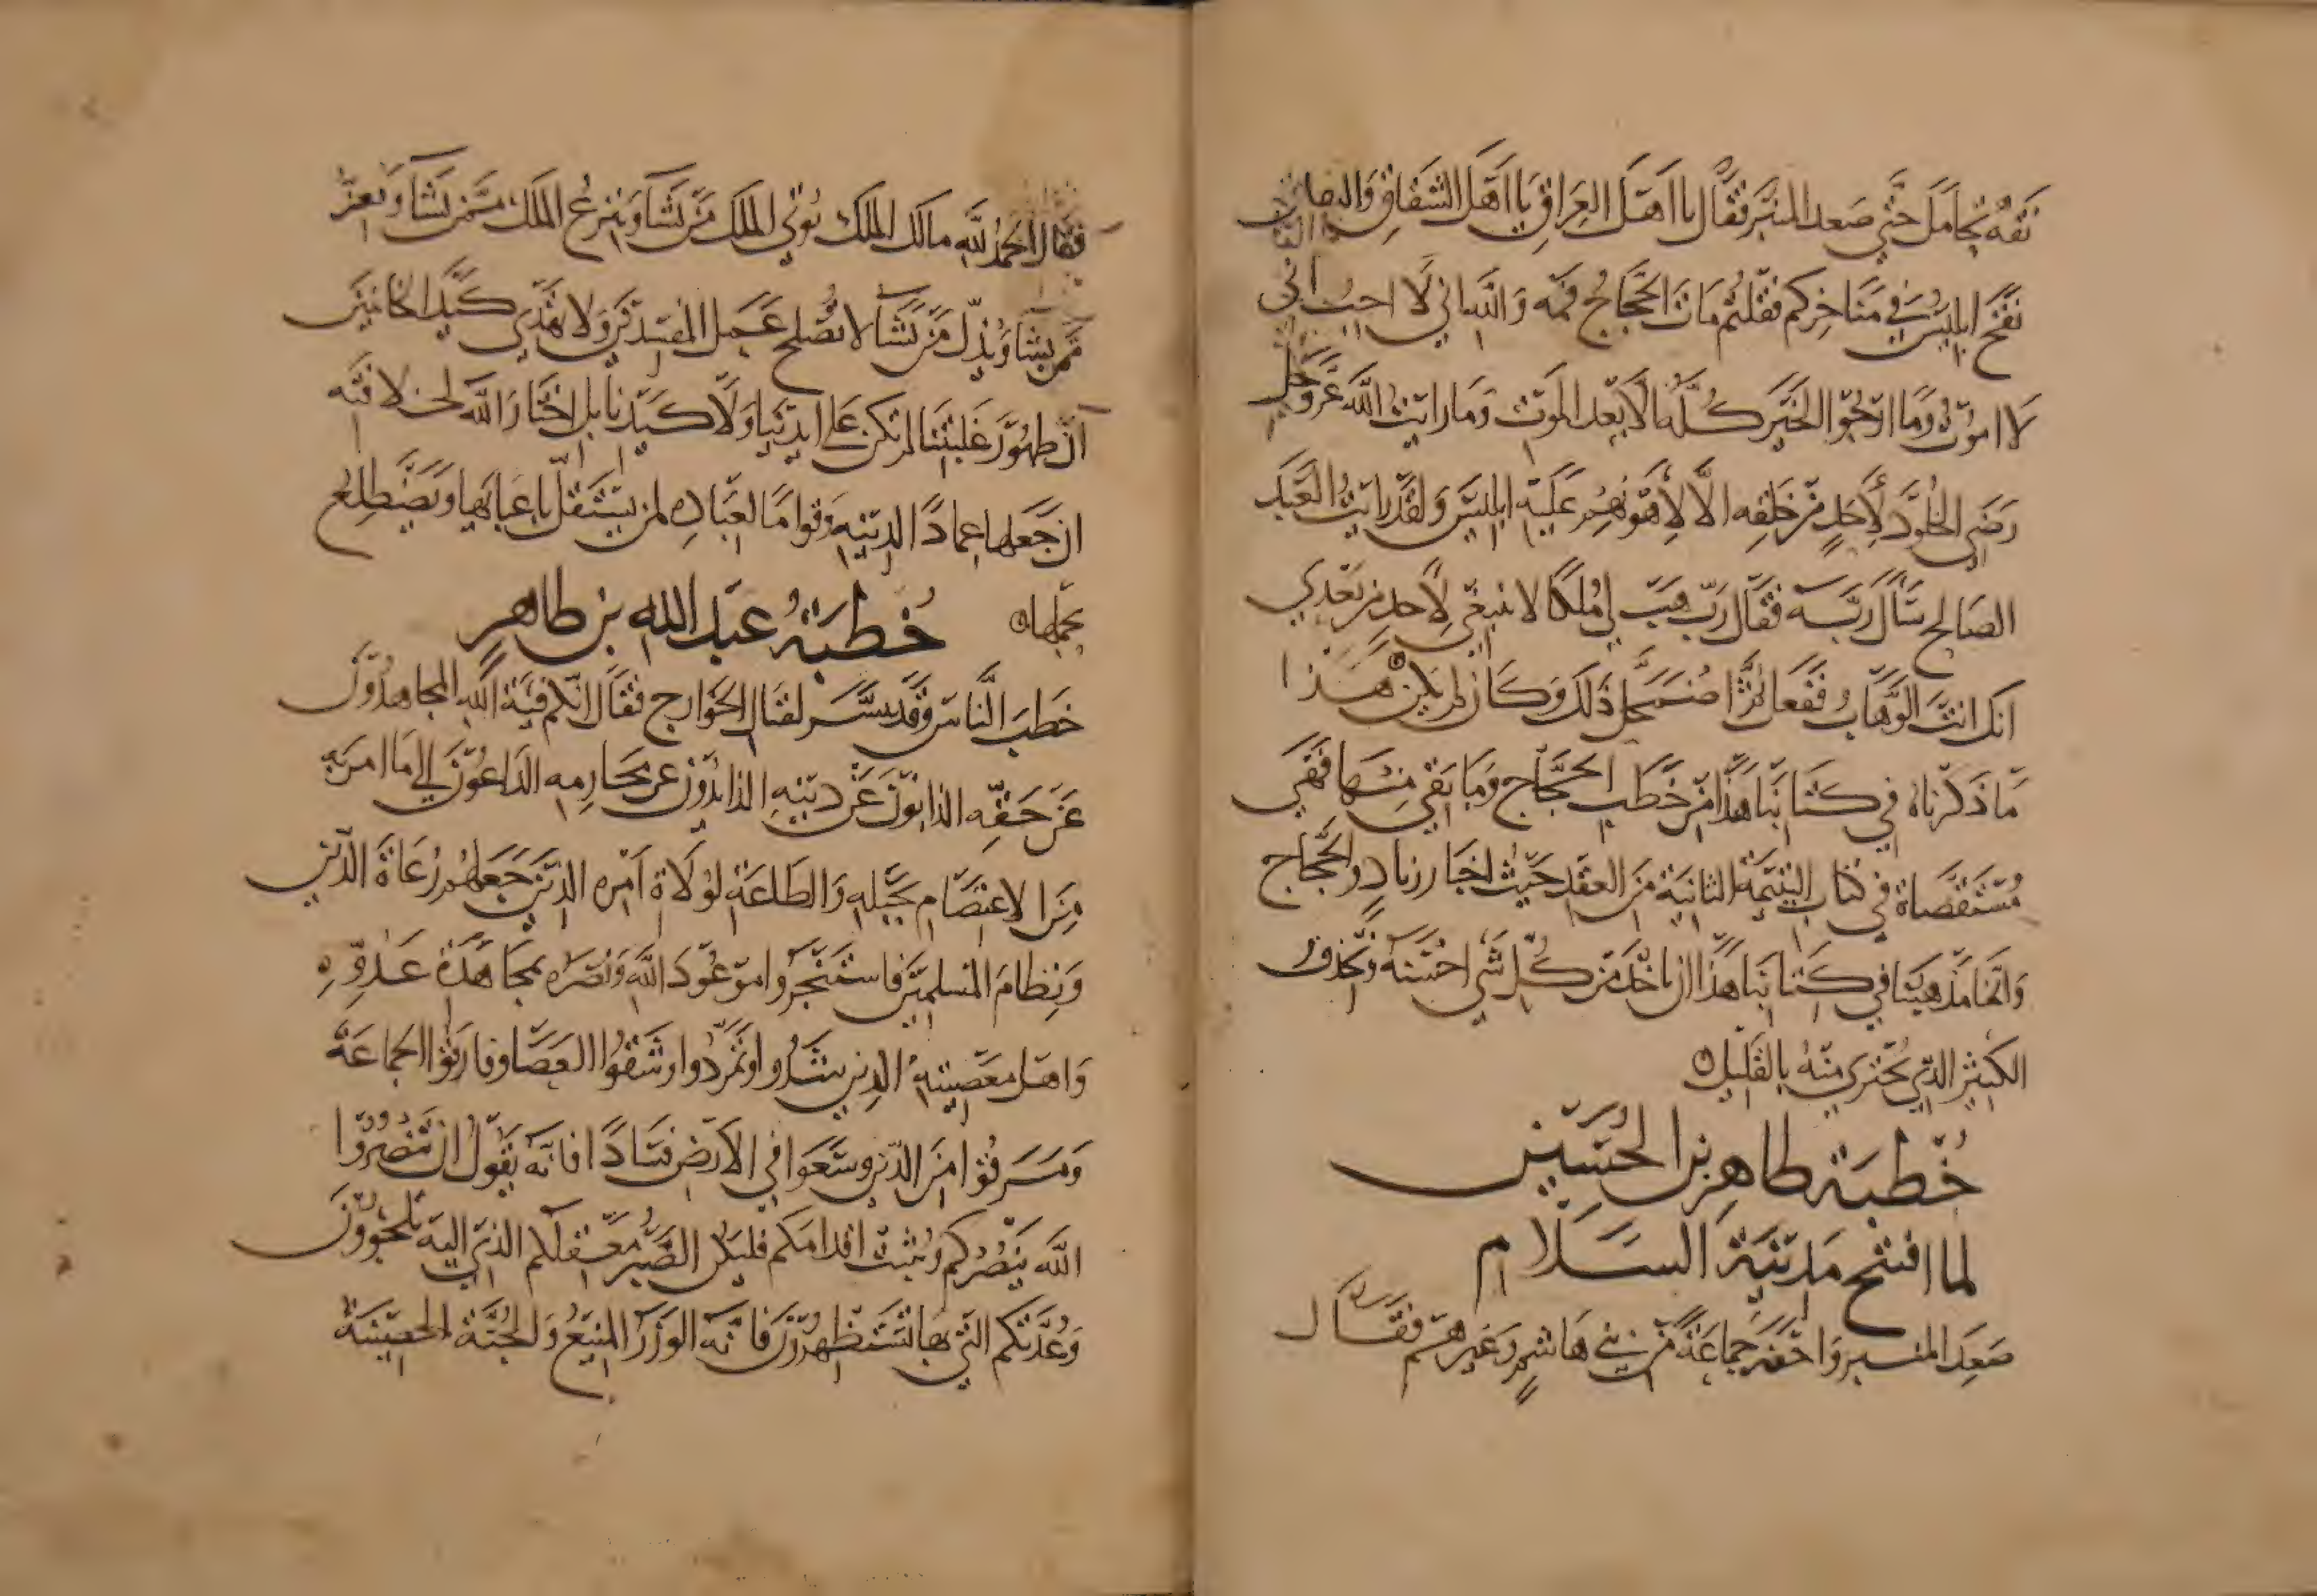 نقه تحامل حتى صعد المنبر فقال يا اهل العراق يا اهل الشقاق والنفاق
نفخ ابليس في مناخركم فقلتم مات الحجاج فمه والله اني لا احب اني
لا اموت وما ارجوا الخير كله الا بعد الموت وما رايت الله عز وجل
رضي الخلود لاحد من خلقه الا لاهونهم عليه ابليس ولقد رايت العبد
الصالح سال ربه فقال رب هب لي ملكا لا ينبغي لاحد من بعدي
انك انت الوهاب ففعل ثم اضمحل ذلك وكان لم يكن هذا
ما ذكرناه في كتابنا هذا من خطب الحجاج وما بقي منها فهي
مستقصاة في كتاب اليتيمة الثانية من العقد حيث اخبار زياد والحجاج
وانما مذهبنا في كتابنا هذا ان ناخذ من كل شي احسنه ونحذف
الكثير الذي يجتزي منه بالقليل
خطبة طاهر بن الحسين
لما افتتح مدينة السلام
صعد المنبر واحضر جماعة من بني هاشم وغيرهم فقال
فقال الحمد لله مالك الملك توتي الملك من تشا وتنزع الملك ممن تشا وتعز
من تشا وتذل من تشا لا تصلح عمل المفسدين ولا تهدي كيد الخاينين
ان ظهور غلبتنا لم تكن على ايدينا ولا كيدنا بل اختار الله لخلافته
ان جعلها عمادا لدينه وقواما لعباده لمن يستقل باعبايها ويضطلع
بحملها
خطبة عبد الله بن طاهر
خطب الناس وقد يسر لقتال الخوارج فقال انكم فية الله المجاهدون
عن حقه الذابون عن دينه الذايدون عن محارمه الداعون الى ما امر به
من الاعتصام بحبله والطاعة لولاة امره الذين جعلهم رعاة الدين
ونظام المسلمين فاستنجزوا موعود الله ونصره بمجاهدة عدوه
واهل معصيته الذين اشروا وتمردوا وشقوا العصا وفارقوا الجماعة
ومرقوا من الدين وسعوا في الارض فسادا فانه يقول ان تنصروا
الله ينصركم ويثبت اقدامكم فليكن الصبر معقلكم الذي اليه تلجوون
وعدتكم التي بها تستظهرون فانه الوزر المنيع والجنة الحصينة